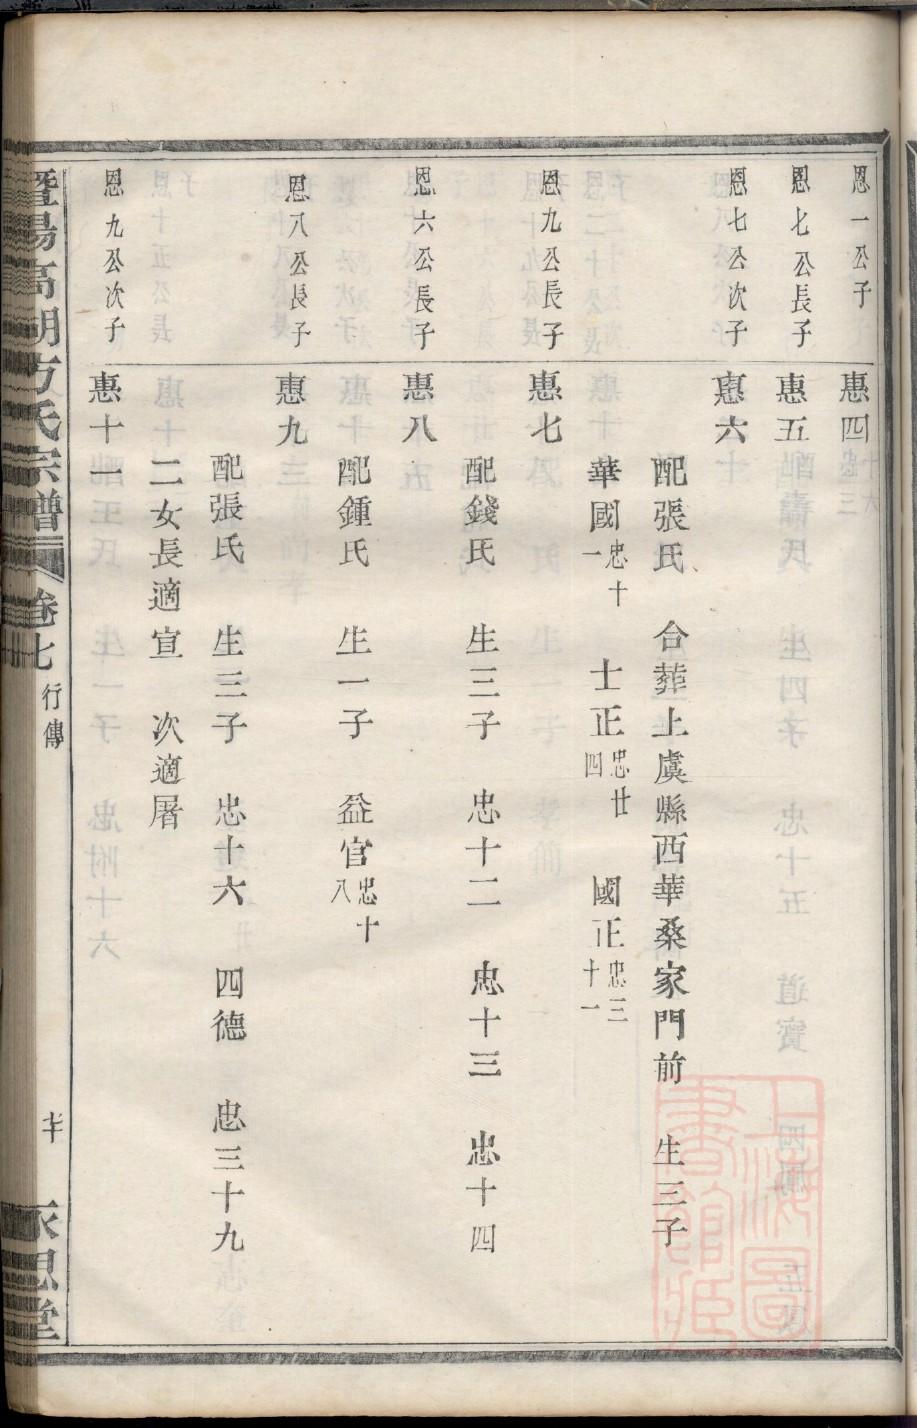 恩一公子
惠四
恩七公長子
惠五
恩七公次子
惠六
配張氏 合葬上虞縣西華桑家門前 生三子
華國忠十一 士正忠廿四 國正忠三十一
恩九公長子
惠七
配錢氏 生三子 忠十二 忠十三 忠十四
恩六公長子
惠八
配鍾氏 生一子 益官忠十八
恩八公長子
惠九
配張氏 生三子 忠十六 四德 忠三十九
二女長適宣 次適屠
恩九公次子
惠十一
暨陽高湖方氏宗譜 卷七 行傳 永思堂
上海圖書館藏